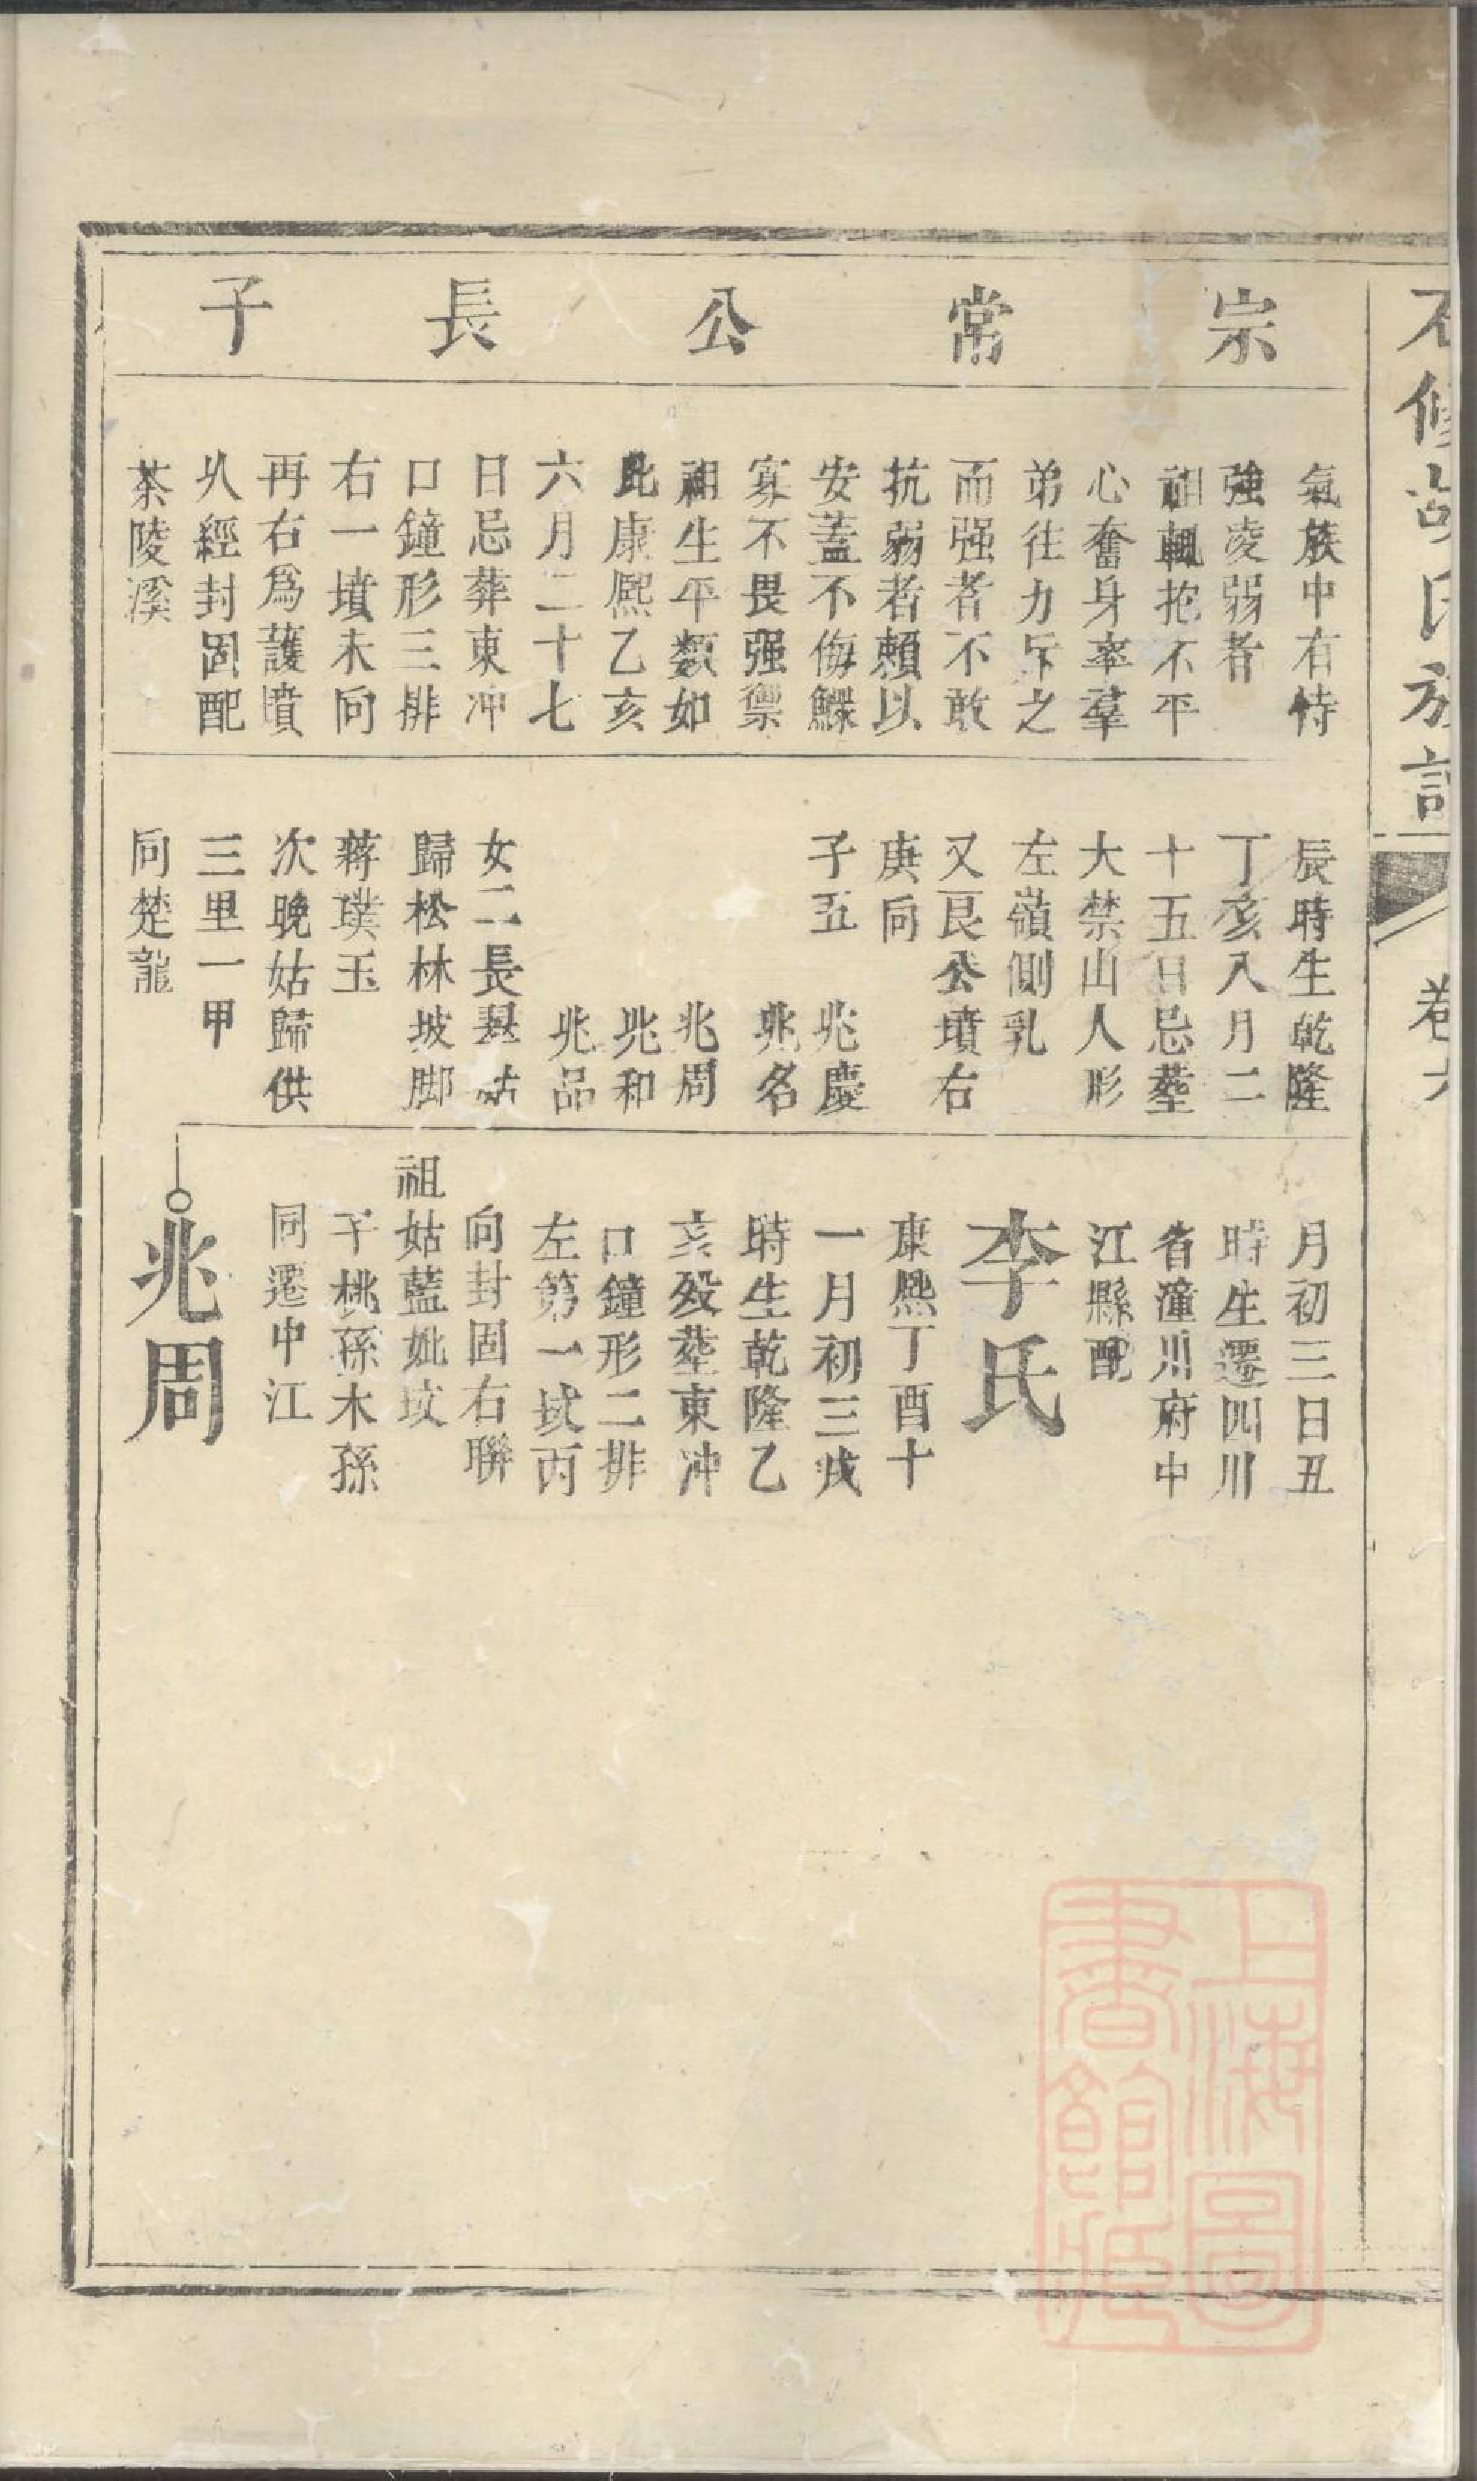 修胡氏族譜
卷六
宗常公長子
氣族中有恃
強凌弱者
祖輒抱不平
心奮身率羣
弟往力斥之
而强者不敢
抗弱者賴以
安蓋不侮鰥
寡不畏强禦
祖生平類如
此康熙乙亥
六月二十七
日忌葬東冲
口鐘形三排
右一墳未向
再右為護墳
乆經封固配
茶陵溪
辰時生乾隆
丁亥八月二
十五日忌塟
大禁山人形
左嶺側乳
又艮公墳右
庚向
子五 兆慶
兆名
兆周
兆和
兆品
女二長姑
歸松林坡脚
蔣璞玉
次晚姑歸供
三里一甲
同楚龍
月初三日丑
時生遷四川
省潼川府中
江縣配
李氏
康熙丁酉十
一月初三戌
時生乾隆乙
亥歿塟東冲
口鐘形二排
左第一坟丙
向封固右聯
祖姑藍妣坟
子桃孫木孫
同遷中江
兆周
上海圖
書館藏